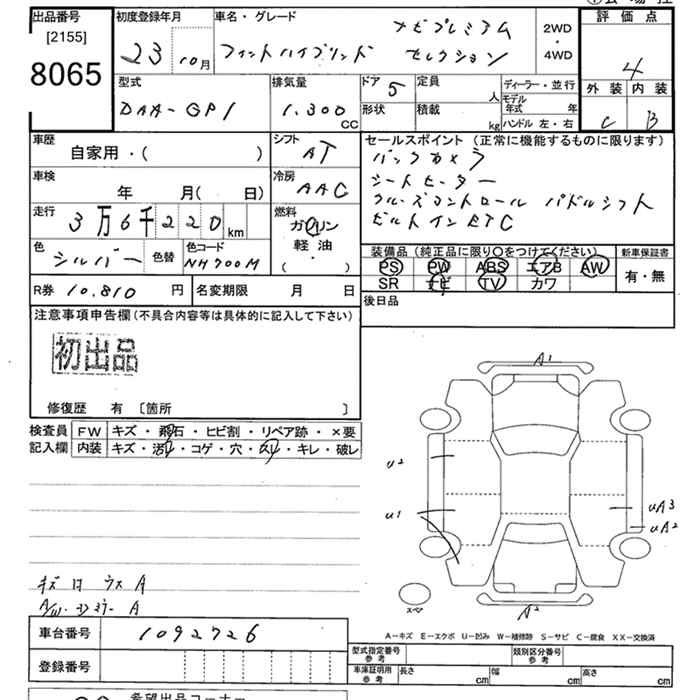 出品番号
[2155]
8065
初度登録年月
23 10月
車名・グレード
ナビプレミアム
フィットハイブリッド セレクション
2WD
・
4WD
評価点
4
外装 内装
C B
型式
DAA-GP1
排気量
1.300 CC
ドア 5
形状
定員 人
積載 kg
ディーラー・並行
モデル年式 年
ハンドル 左・右
車歴
自家用・( )
シフト
AT
車検
年 月( 日)
冷房
AAC
走行
3万6千220 km
燃料
ガソリン
軽油
( ・ )
色
シルバー
色替
色コード
NH700M
R券 10.810 円
名変期限 月 日
セールスポイント (正常に機能するものに限ります)
バックカメラ
シートヒーター
クルーズコントロール パドルシフト
ビルトインETC
装備品 (純正品に限り○をつけてください)
PS PW ABS エアB AW
SR ナビ TV カワ
新車保証書
有・無
後日品
注意事項申告欄 (不具合内容等は具体的に記入して下さい)
初出品
修復歴 有 〔箇所 〕
検査員記入欄
FW キズ・飛石・ヒビ割・リペア跡・×要
内装 キズ・汚れ・コゲ・穴・スレ・キレ・破レ
A1
U2
U1
UA3
UA2
A2
スペア
A-キズ E-エクボ U-凹み W-補修跡 S-サビ C-腐食 XX-交換済
車台番号 1092726
登録番号
型式指定番号 参考
類別区分番号 参考
車庫証明用 参考 長さ cm 幅 cm 高さ cm
希望出品コーナー